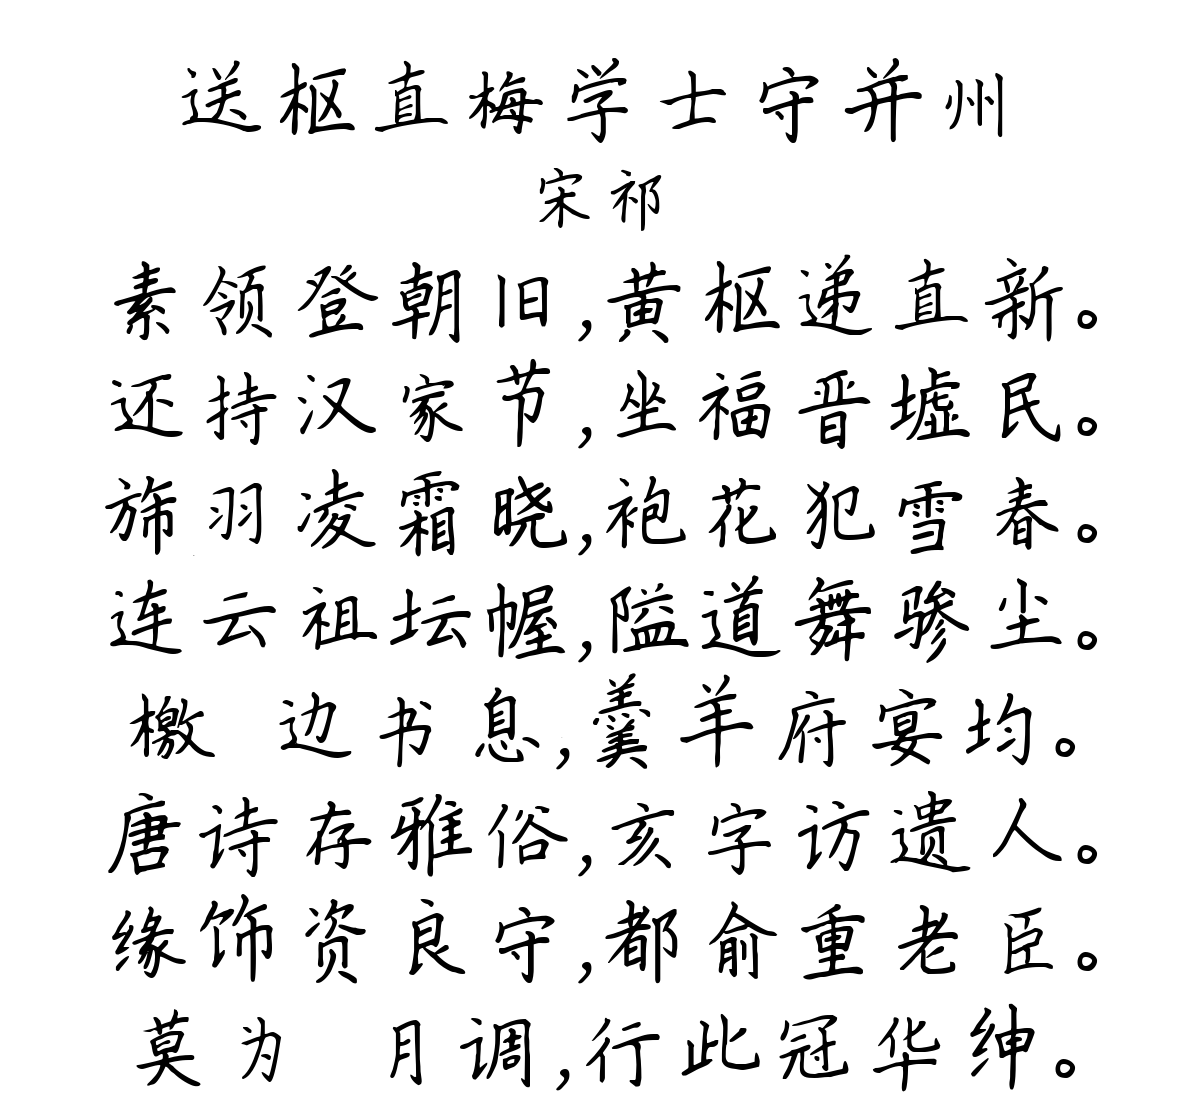 送枢直梅学士守并州
宋祁
素领登朝旧,黄枢递直新。
还持汉家节,坐福晋墟民。
旆羽凌霜晓,袍花犯雪春。
连云祖坛幄,隘道舞骖尘。
檄 边书息,羹羊府宴均。
唐诗存雅俗,亥字访遗人。
缘饰资良守,都俞重老臣。
莫为 月调,行此冠华绅。